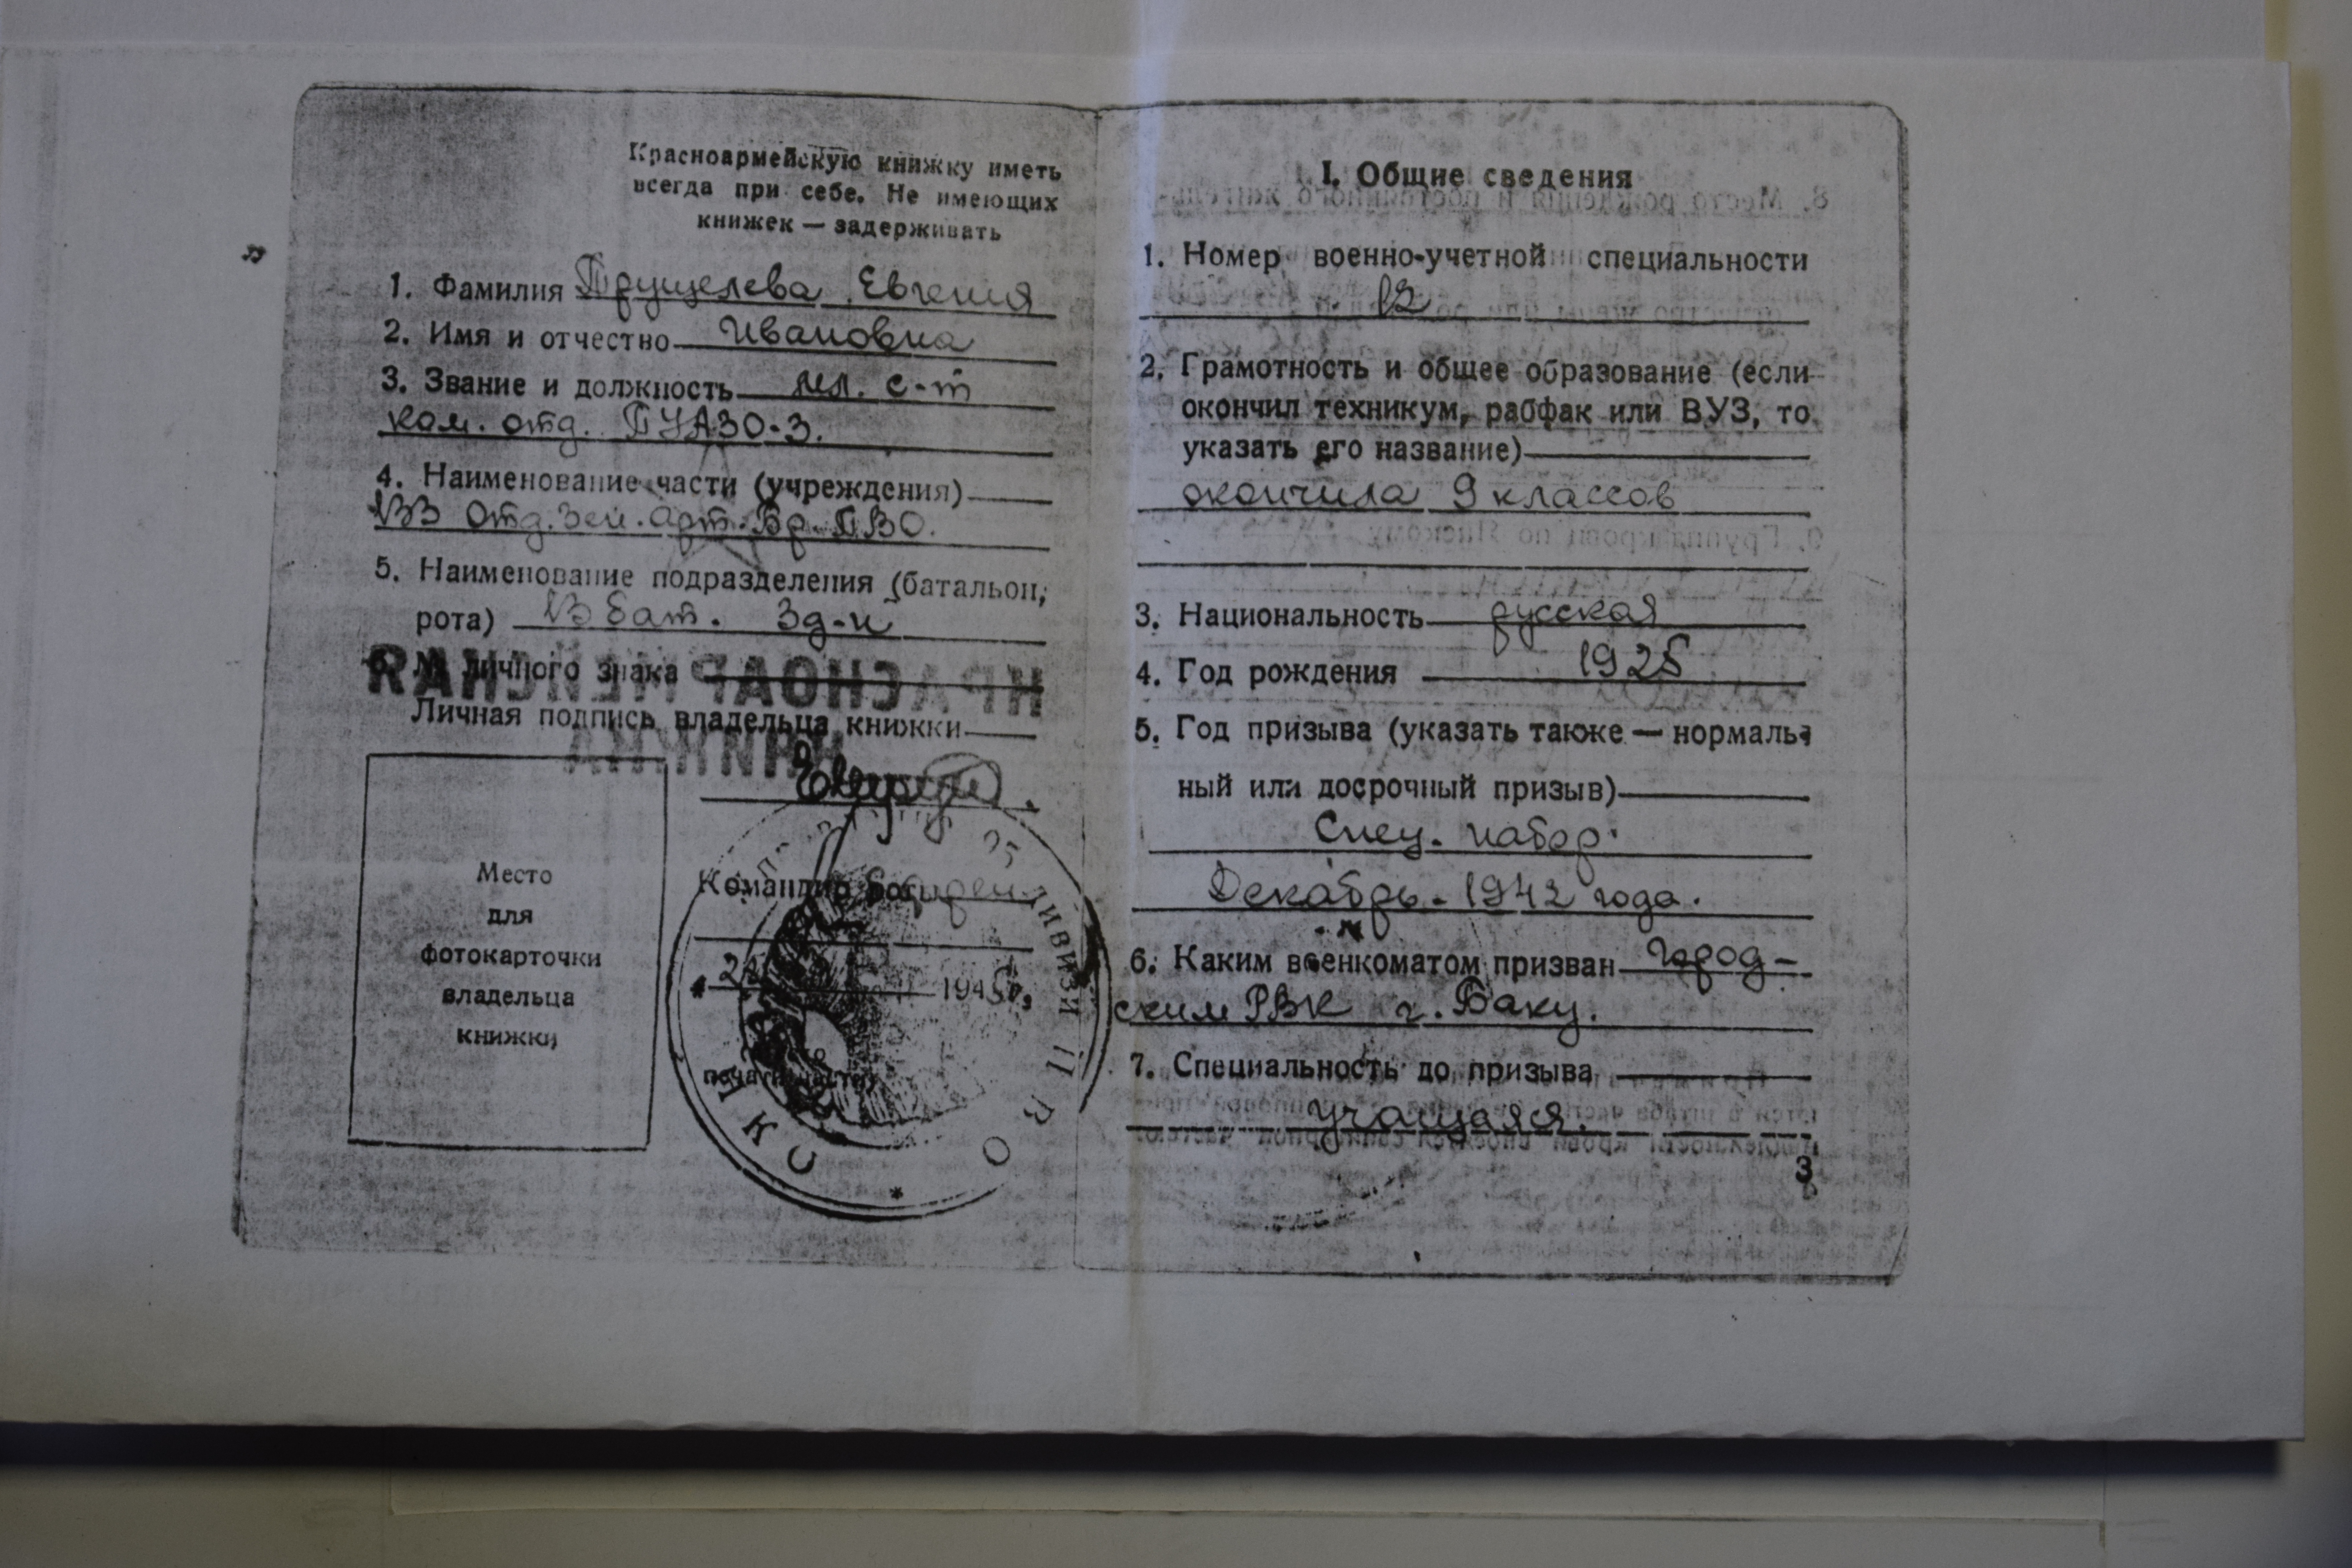 Красноармейскую книжку иметь
всегда при себе. Не имеющих
книжек — задерживать
1. Фамилия Трущелева Евгения
2. Имя и отчество Ивановна
3. Звание и должность мл. с-т
ком. отд. ПУАЗО-3.
4. Наименование части (учреждения)
133 Отд. Зен. Арт. Бр. ПВО.
5. Наименование подразделения (батальон,
рота) 13 бат. 3 д-н
личного знака
Личная подпись владельца книжки
Командир
1945 г.
Место
для
фотокарточки
владельца
книжки
I. Общие сведения
1. Номер военно-учетной специальности
12
2. Грамотность и общее образование (если
окончил техникум, рабфак или ВУЗ, то
указать его название)
окончила 9 классов
3. Национальность русская
4. Год рождения 1925
5. Год призыва (указать также — нормаль-
ный или досрочный призыв)
Спец. набор.
Декабрь. 1942 года.
6. Каким военкоматом призван Город-
ским РВК г. Баку.
7. Специальность до призыва
учащаяся.
3